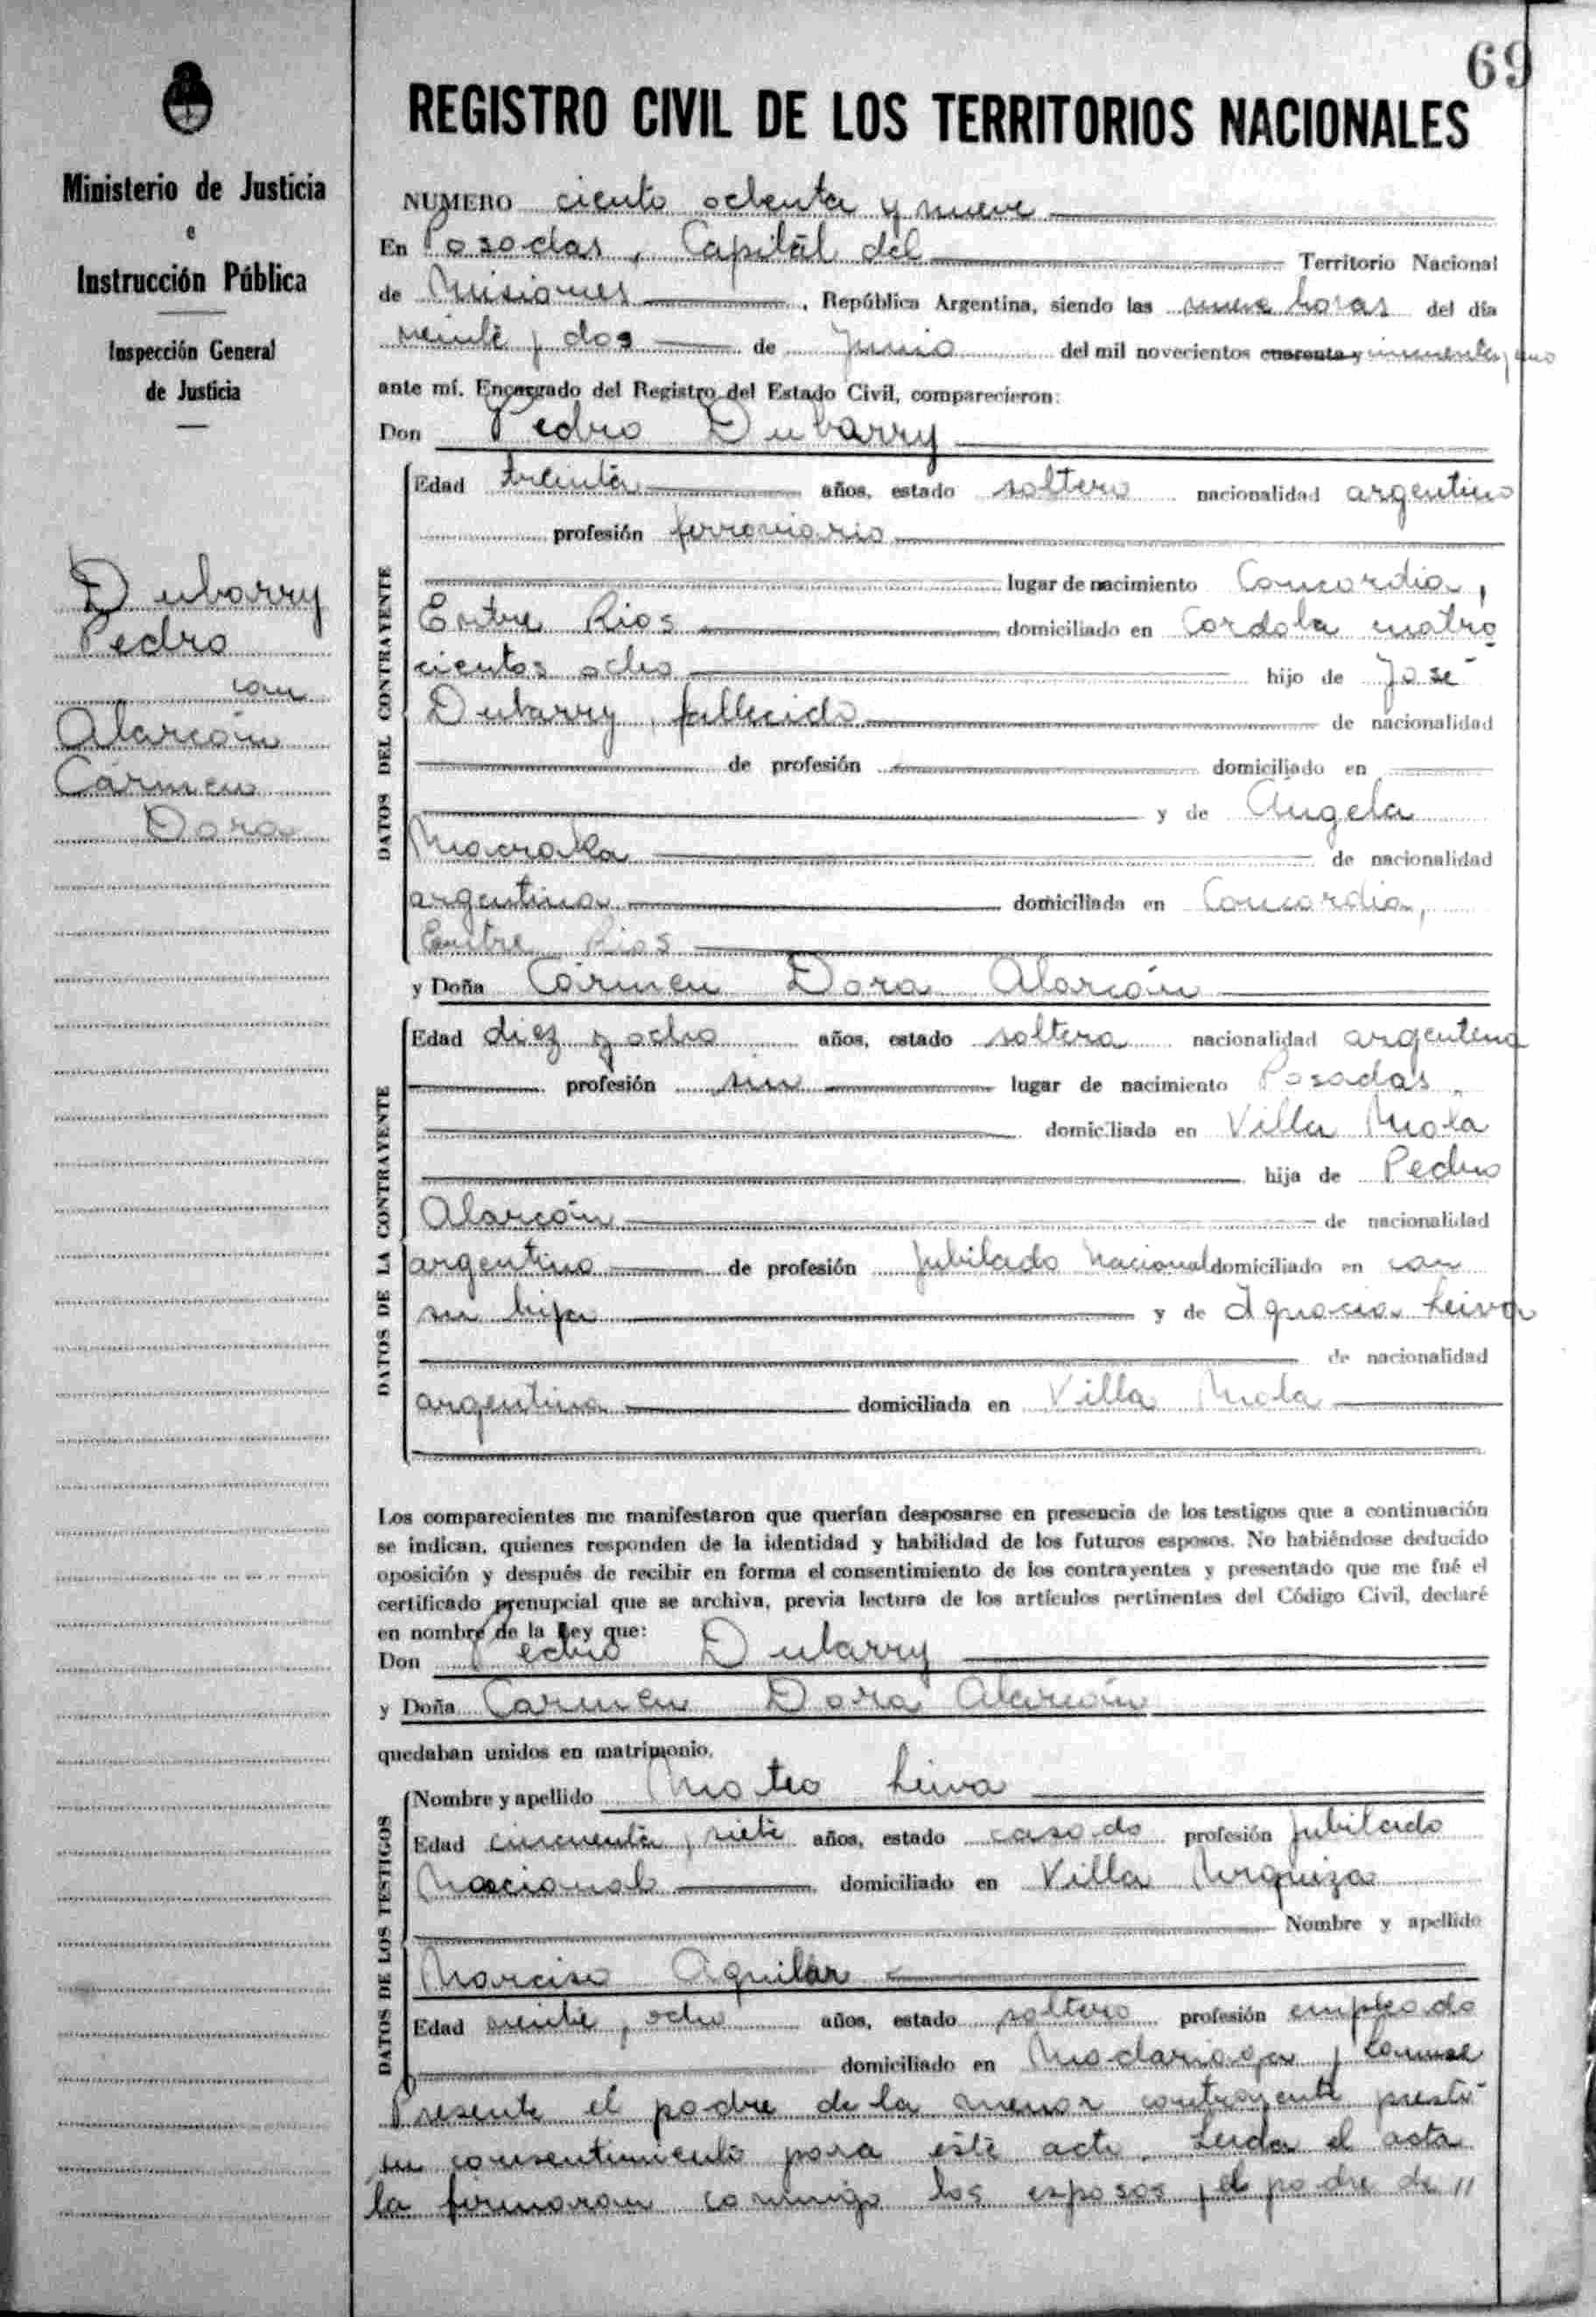 69
Ministerio de Justicia
e
Instrucción Pública
Inspección General
de Justicia
Dubarry
Pedro
con
Alarcón
Cármen
Dora
REGISTRO CIVIL DE LOS TERRITORIOS NACIONALES
NUMERO ciento ochenta y nueve
En Posadas, Capital del Territorio Nacional
de Misiones, República Argentina, siendo las nueve horas del día
veinte y dos de Junio del mil novecientos cuarenta y cincuenta y uno
ante mí, Encargado del Registro del Estado Civil, comparecieron:
Don Pedro Dubarry
DATOS DEL CONTRAYENTE
Edad treinta años, estado soltero nacionalidad argentino
profesión ferroviario
lugar de nacimiento Concordia,
Entre Rios domiciliado en Cordoba cuatro
cientos ocho hijo de José
Dubarry, fallecido de nacionalidad
de profesión domiciliado en
y de Angela
de nacionalidad
argentina domiciliada en Concordia,
Entre Rios
y Doña Cármen Dora Alarcón
DATOS DE LA CONTRAYENTE
Edad diez y ocho años, estado soltera nacionalidad argentina
profesión sin lugar de nacimiento Posadas
domiciliada en Villa Mola
hija de Pedro
Alarcón de nacionalidad
argentino de profesión Jubilado Nacional domiciliado en con
su hija y de Ignacia Leiva
de nacionalidad
argentina domiciliada en Villa Mola
Los comparecientes me manifestaron que querían desposarse en presencia de los testigos que a continuación
se indican, quienes responden de la identidad y habilidad de los futuros esposos. No habiéndose deducido
oposición y después de recibir en forma el consentimiento de los contrayentes y presentado que me fué el
certificado prenupcial que se archiva, previa lectura de los artículos pertinentes del Código Civil, declaré
en nombre de la Ley que:
Don Pedro Dubarry
y Doña Carmen Dora Alarcón
quedaban unidos en matrimonio.
DATOS DE LOS TESTIGOS
Nombre y apellido Mateo Leiva
Edad cincuenta y siete años, estado casado profesión Jubilado
Nacional domiciliado en Villa Urquiza
Nombre y apellido
Narciso Aguilar
Edad veinte y ocho años, estado soltero profesión empleado
domiciliado en Madariaga y
Presente el padre de la menor contrayente prestó
su consentimiento para este acto. Leida el acta
la firmaron conmigo los esposos, el padre de "